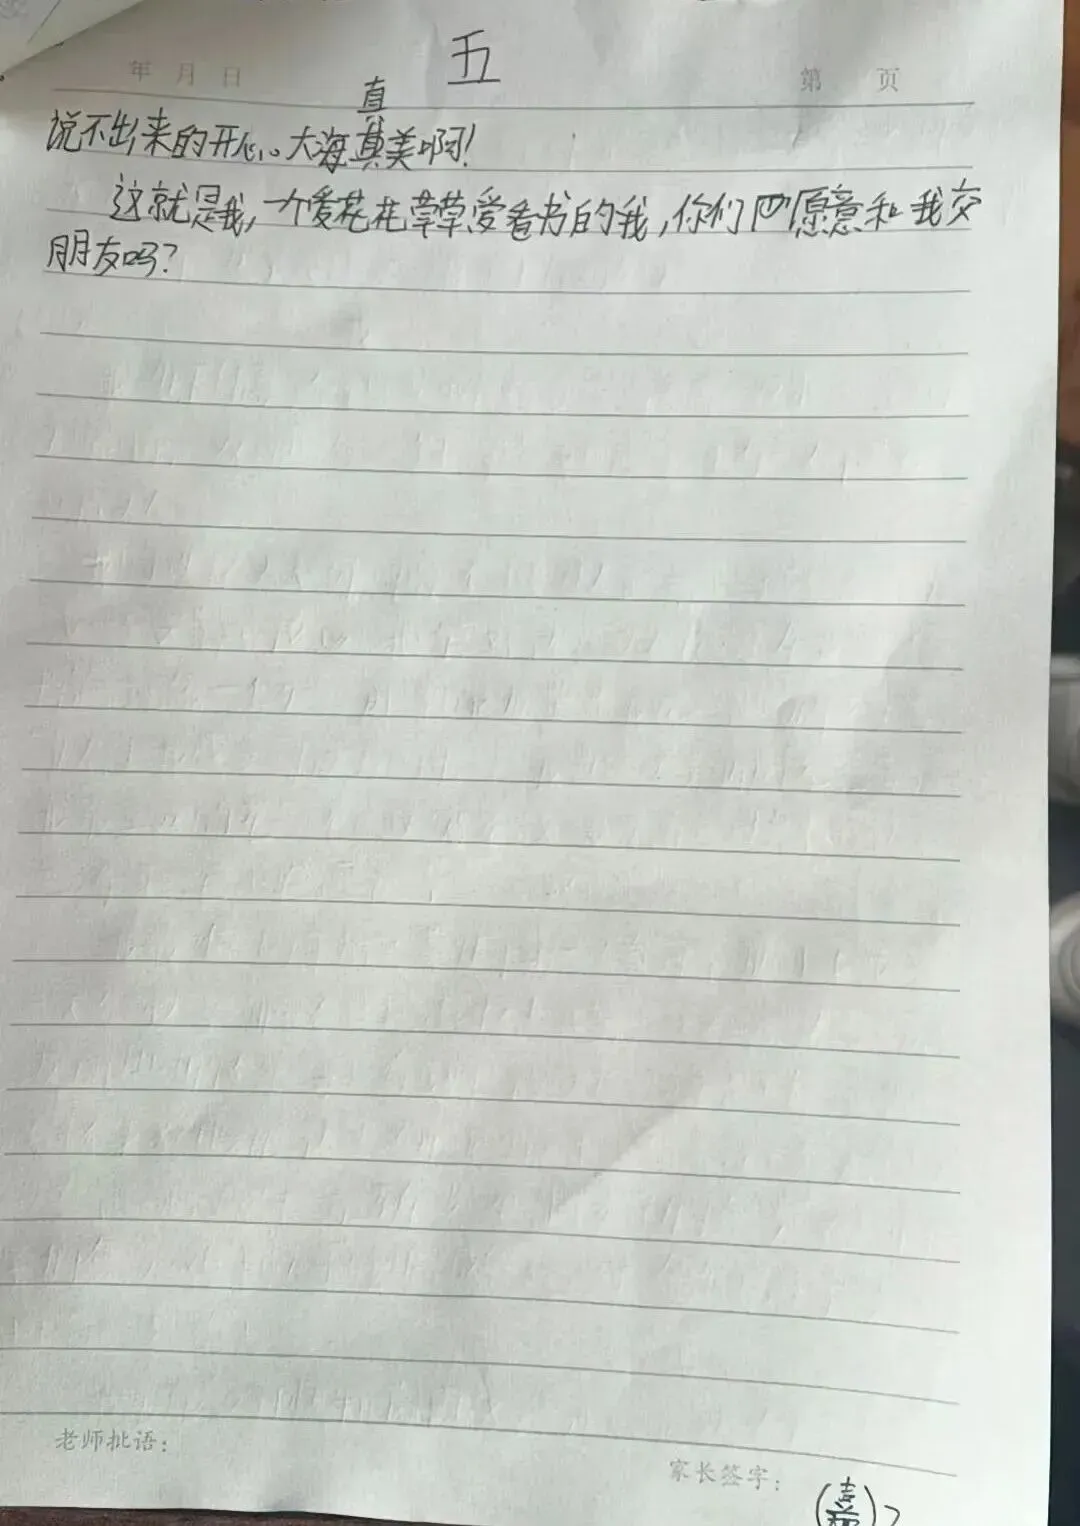 五
年 月 日
第 页
真
说不出来的开心。大海真美啊!
这就是我,一个爱花花草草爱看书的我,你们愿意和我交
朋友吗?
老师批语:
家长签字: